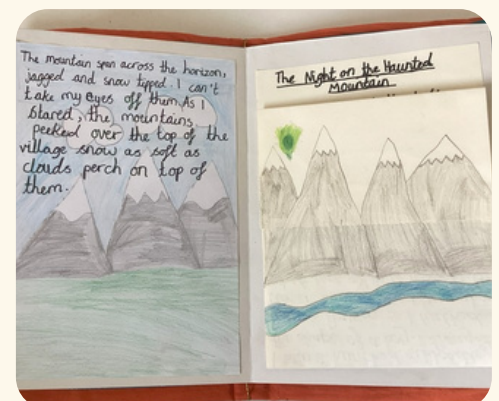 The mountain span across the horizon,
jagged and snow tipped. I can't
take my eyes off them. As I
stared, the mountains
peeked over the top of the
village snow as soft as
clouds perch on top of
them.
The Night on the Haunted
Mountain